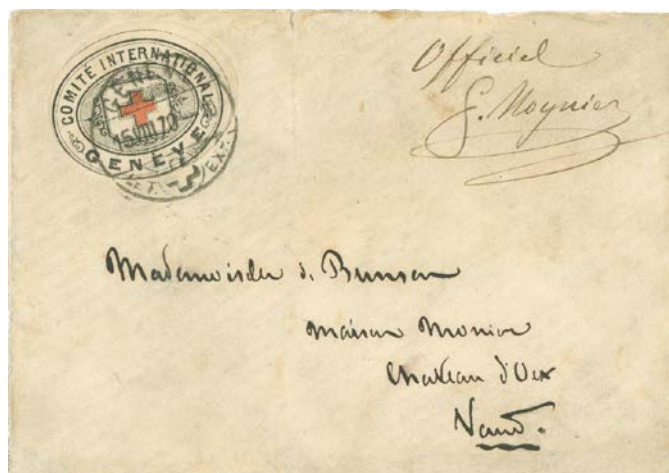 COMITÉ INTERNATIONAL
GENÈVE
15 VIII 70
Officiel
G. Moynier
Mademoiselle de Bunsen
Maison Monier
Chateau d'Oex
Vaud.